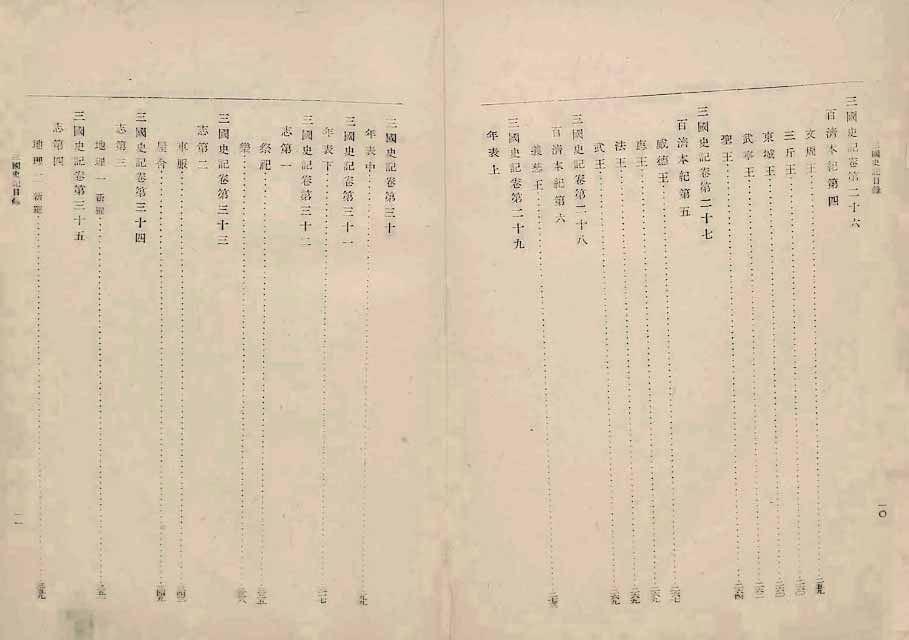 三國史記目錄
三國史記卷第二十六
百濟本紀第四
文周王
三斤王
東城王
武寧王
聖王
三國史記卷第二十七
百濟本紀第五
威德王
惠王
法王
武王
三國史記卷第二十八
百濟本紀第六
義慈王
三國史記卷第二十九
年表上
一〇
三國史記卷第三十
年表中
三國史記卷第三十一
年表下
三國史記卷第三十二
志第一
祭祀
樂
三國史記卷第三十三
志第二
車服
屋舍
三國史記卷第三十四
志第三
地理一 新羅
三國史記卷第三十五
志第四
地理二 新羅
三國史記目錄
一一